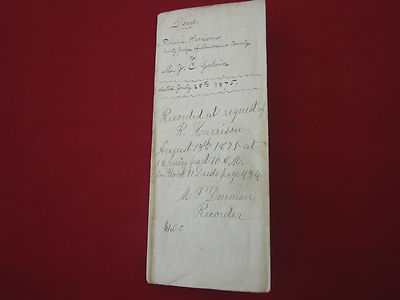 Deed
Harrison
County Judge of County
to
M. J. C. Galvin
dated July 28th 1875.
Recorded at request of
R Harrison
August 13th 1875 at
1 minute past 10 A.M.
in Book 11 Deeds page 434
M P
Recorder